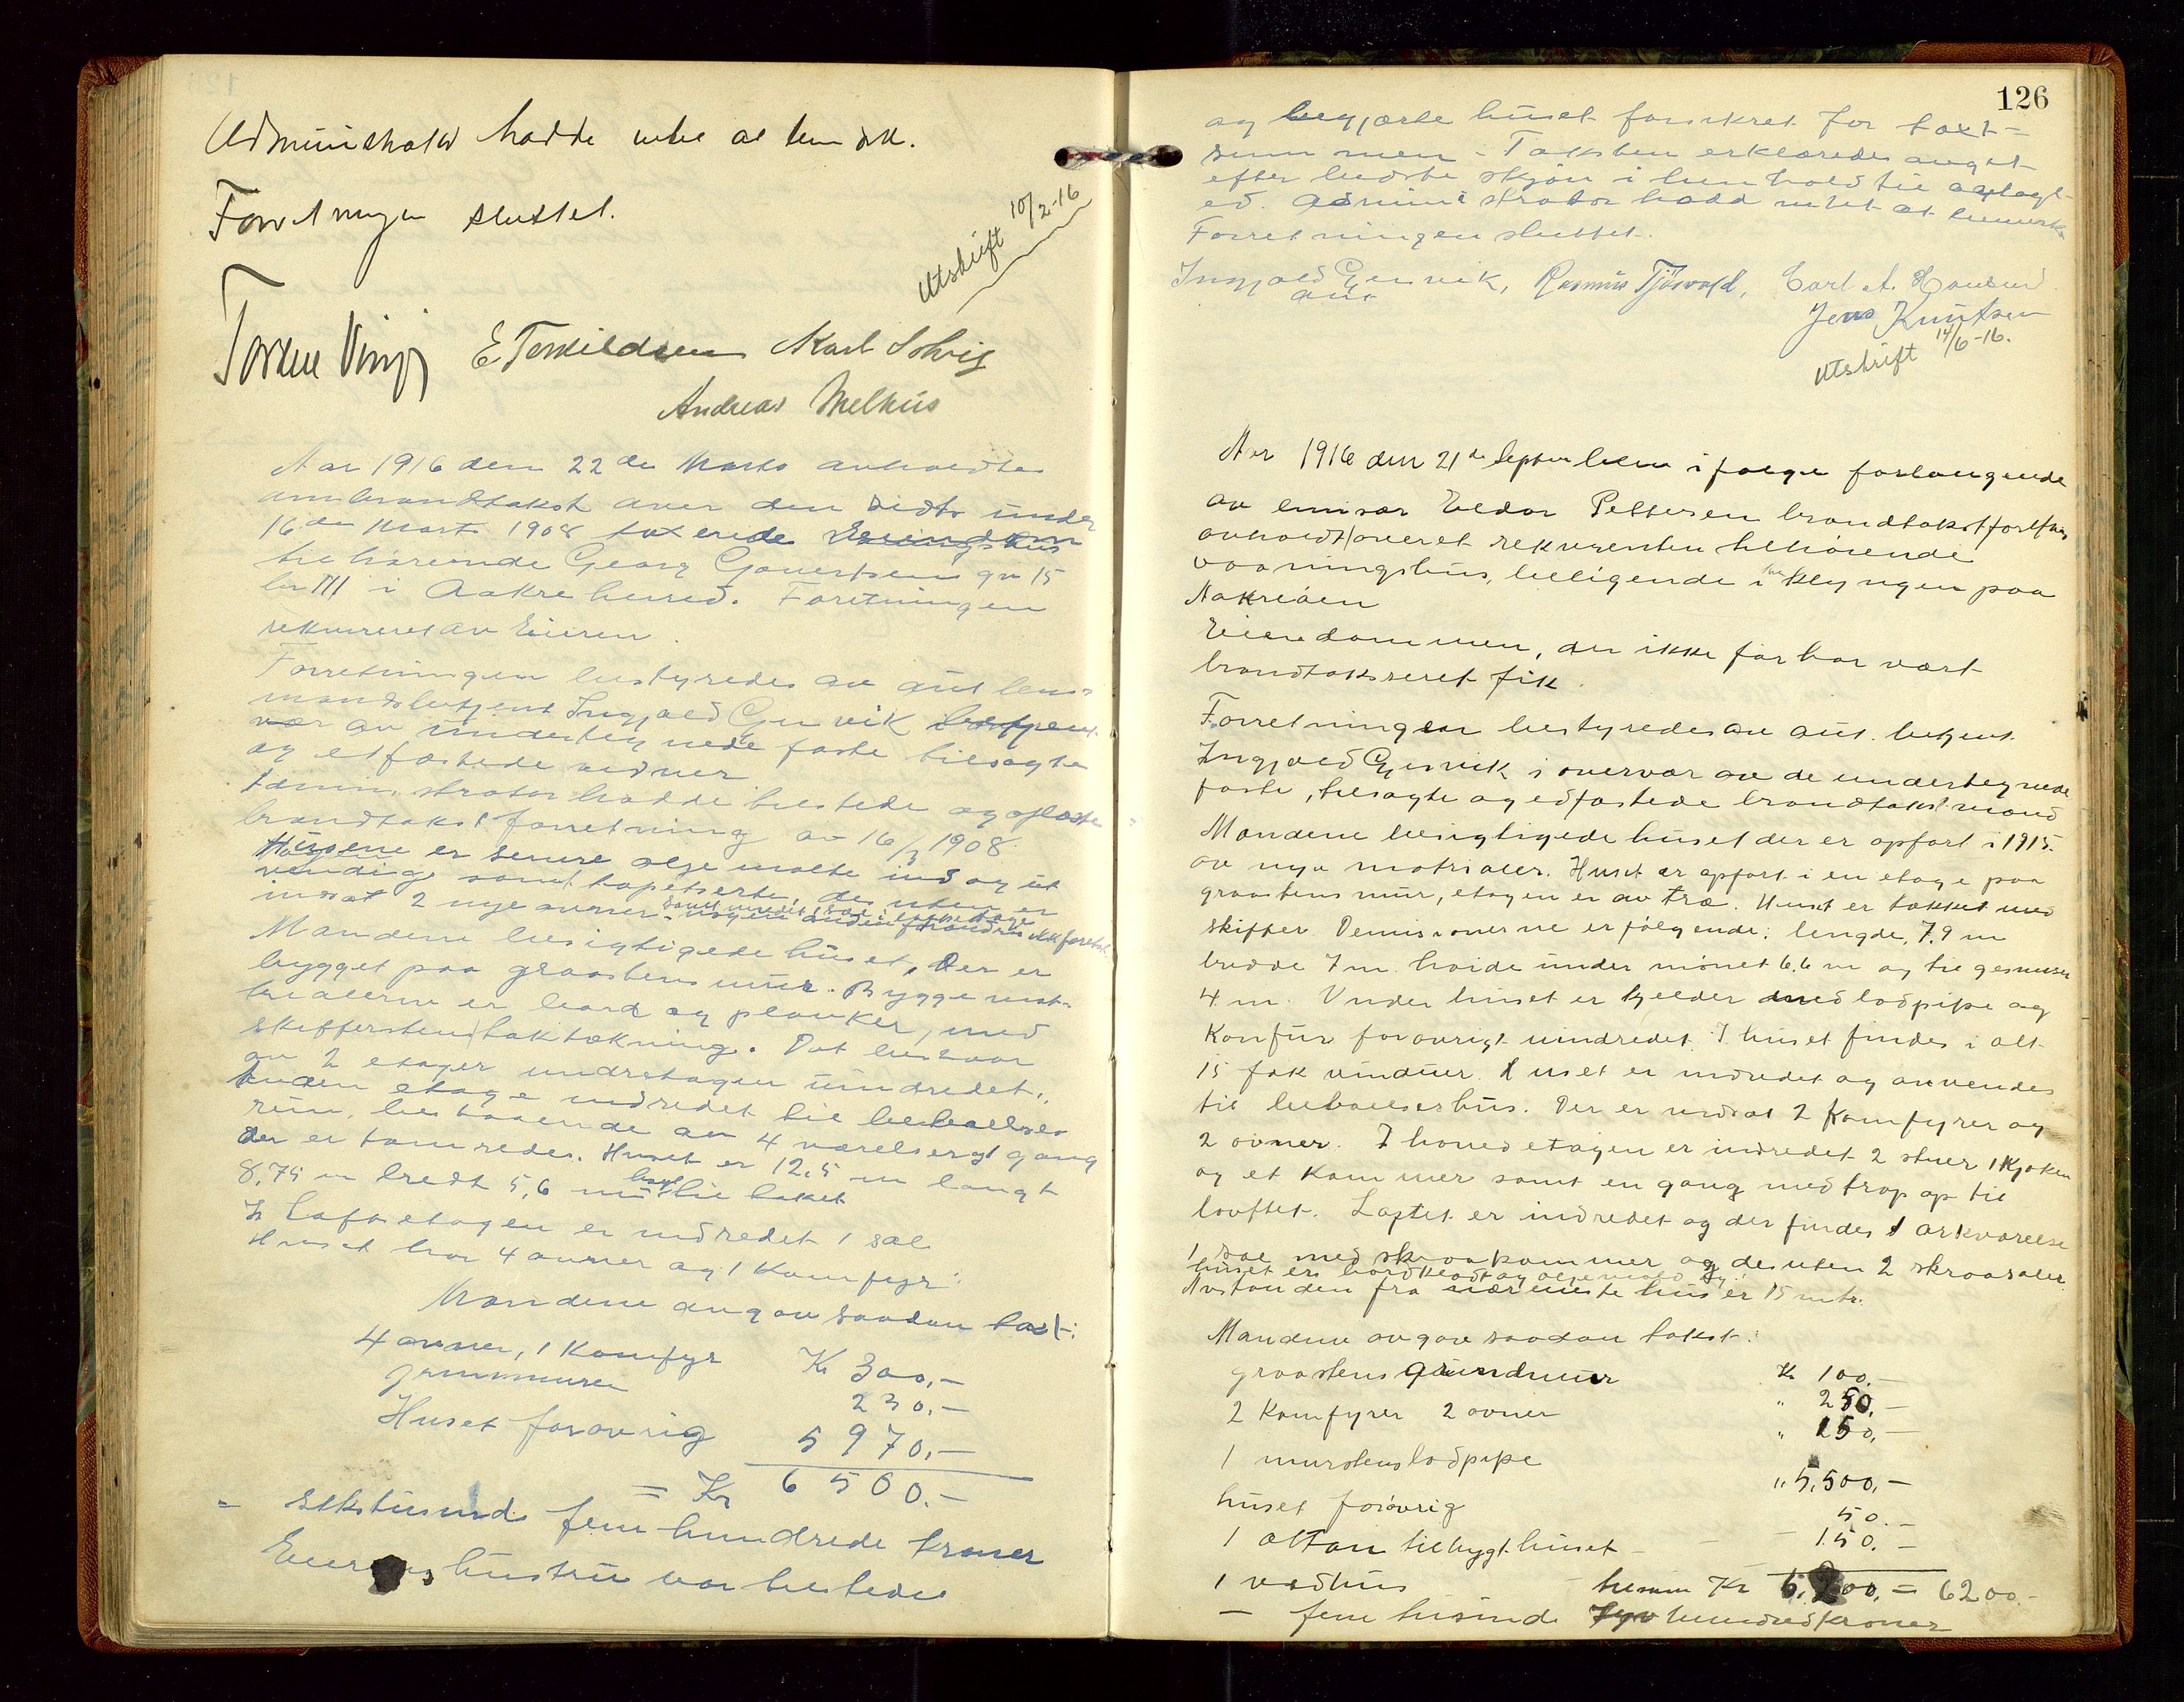 Administrator hadde intet at bemerke.
Forretningen sluttet.
Utskrift 10/2-16
Torkel Vinje E Torkildsen Karl Solvig
Andreas Melhus
Aar 1916 den 22 de Marts avholdtes
ombrandtakst over den sidst under
16 de Marts 1908 taxerede Eiendom
tilhørende Georg Govertsen gn 15
bn 111 i Aakre herred. Foretningen
rekvireret av Eieren.
Forretningen bestyredes av aut lens-
mandsbetjent Ingjald Gjersvik
av undertegnede faste tilsagte
og edfæstede vidner
Administrator hadde tilstede og oplæste
brandtakst forretning av 16/3 1908.
Husene er senere olje malte ind og ut
vendig samt tapetserte, des uten er
indsat 2 nye ovner
Mandene besigtigede huset, Der er
bygget paa graastensmur. Bygge mat-
rialerne er bord og planker, med
skifferstens taktækning. Det bestaar
av 2 etager undretagen uindredet.
Anden etage indredet til beboelses
rum, bestaaende av 4 værelser og 1 gang
der er tomredes. Huset er 12,5 m langt
8,75 m bredt 5,6 m høyt til taket
I Loftsetagen er indredet 1 sal
Huset har 4 ovner og 1 Komfyr.
Mandene avgav saadan taxt:
4 ovner, 1 Komfyr Kr 300,-
grunmuren 230,-
Huset forøvrig 5970,-
= Kr 6500.-
= sekstusind fem hundrede kroner
Eierens hustru var tilstede
126
og begjærte huset forsikret for taxt-
summen - Taksten erklæredes avgit
efter bedste skjøn i henhold til avlagt
ed. Administrator hadd intet at bemerke
Forretningen sluttet.
Ingjald Gjersvik, Rasmus Tjøsvold, Carl A. Hansen
aut
Jens Knutsen
Utskrift 14/6-16.
Aar 1916 den 21 de September i følge forlangende
av emisær Eldor Pettersen brandtakstforretning
avholdt over et rekvirenten tilhørende
vaaningshus, beligende i huskyngen paa
Aakreøen
Eiendommen, der ikke før har vært
brandtakseret fik
Forretningen bestyredes av aut. betjent
Ingjald Gjersvik i overvær av de undertegnede
faste, tilsagte og edfæstede brandtakstmænd
Mandene besigtigede huset der er opført i 1915.
av nye matrialer. Huset er opført i en etage paa
graastens mur, etagen er av træ. Huset er tækket med
skiffer Demisionerne er følgende: lengde, 7,9 m
bredde 7 m. høide under mønet 6,6 m og til gesimsen
4 m. Under huset er kjelder med lodpipe og
Komfur forøvrigt uindredet. I huset findes i alt
15 fak vinduer. Huset er indredet og anvendes
til beboelseshus. Der er indsat 2 Komfyrer og
2 ovner. I hovedetagen er indredet 2 stuer 1 Kjøken
og et Kammer samt en gang med trap op til
lovftet. Loftet er indredet og der findes 1 arkværelse
1 sal med skraakammer og desuten 2 skraasaler.
huset er bordklædt og oljemalet
Avstanden fra nærmeste hus er 15 mtr.
Mandene avgav saadan takst:
graastens grundmur Kr 100.-
2 Komfyrer 2 ovner " 250,-
1 murstens lodpipe " 150,-
huset forøvrig " 5,500,-
1 altan tilbygt huset - 50.-
1 vedhus - 150.-
tilsammen Kr 6.200, = 6200.-
- fem tusinde Syv hundred kroner